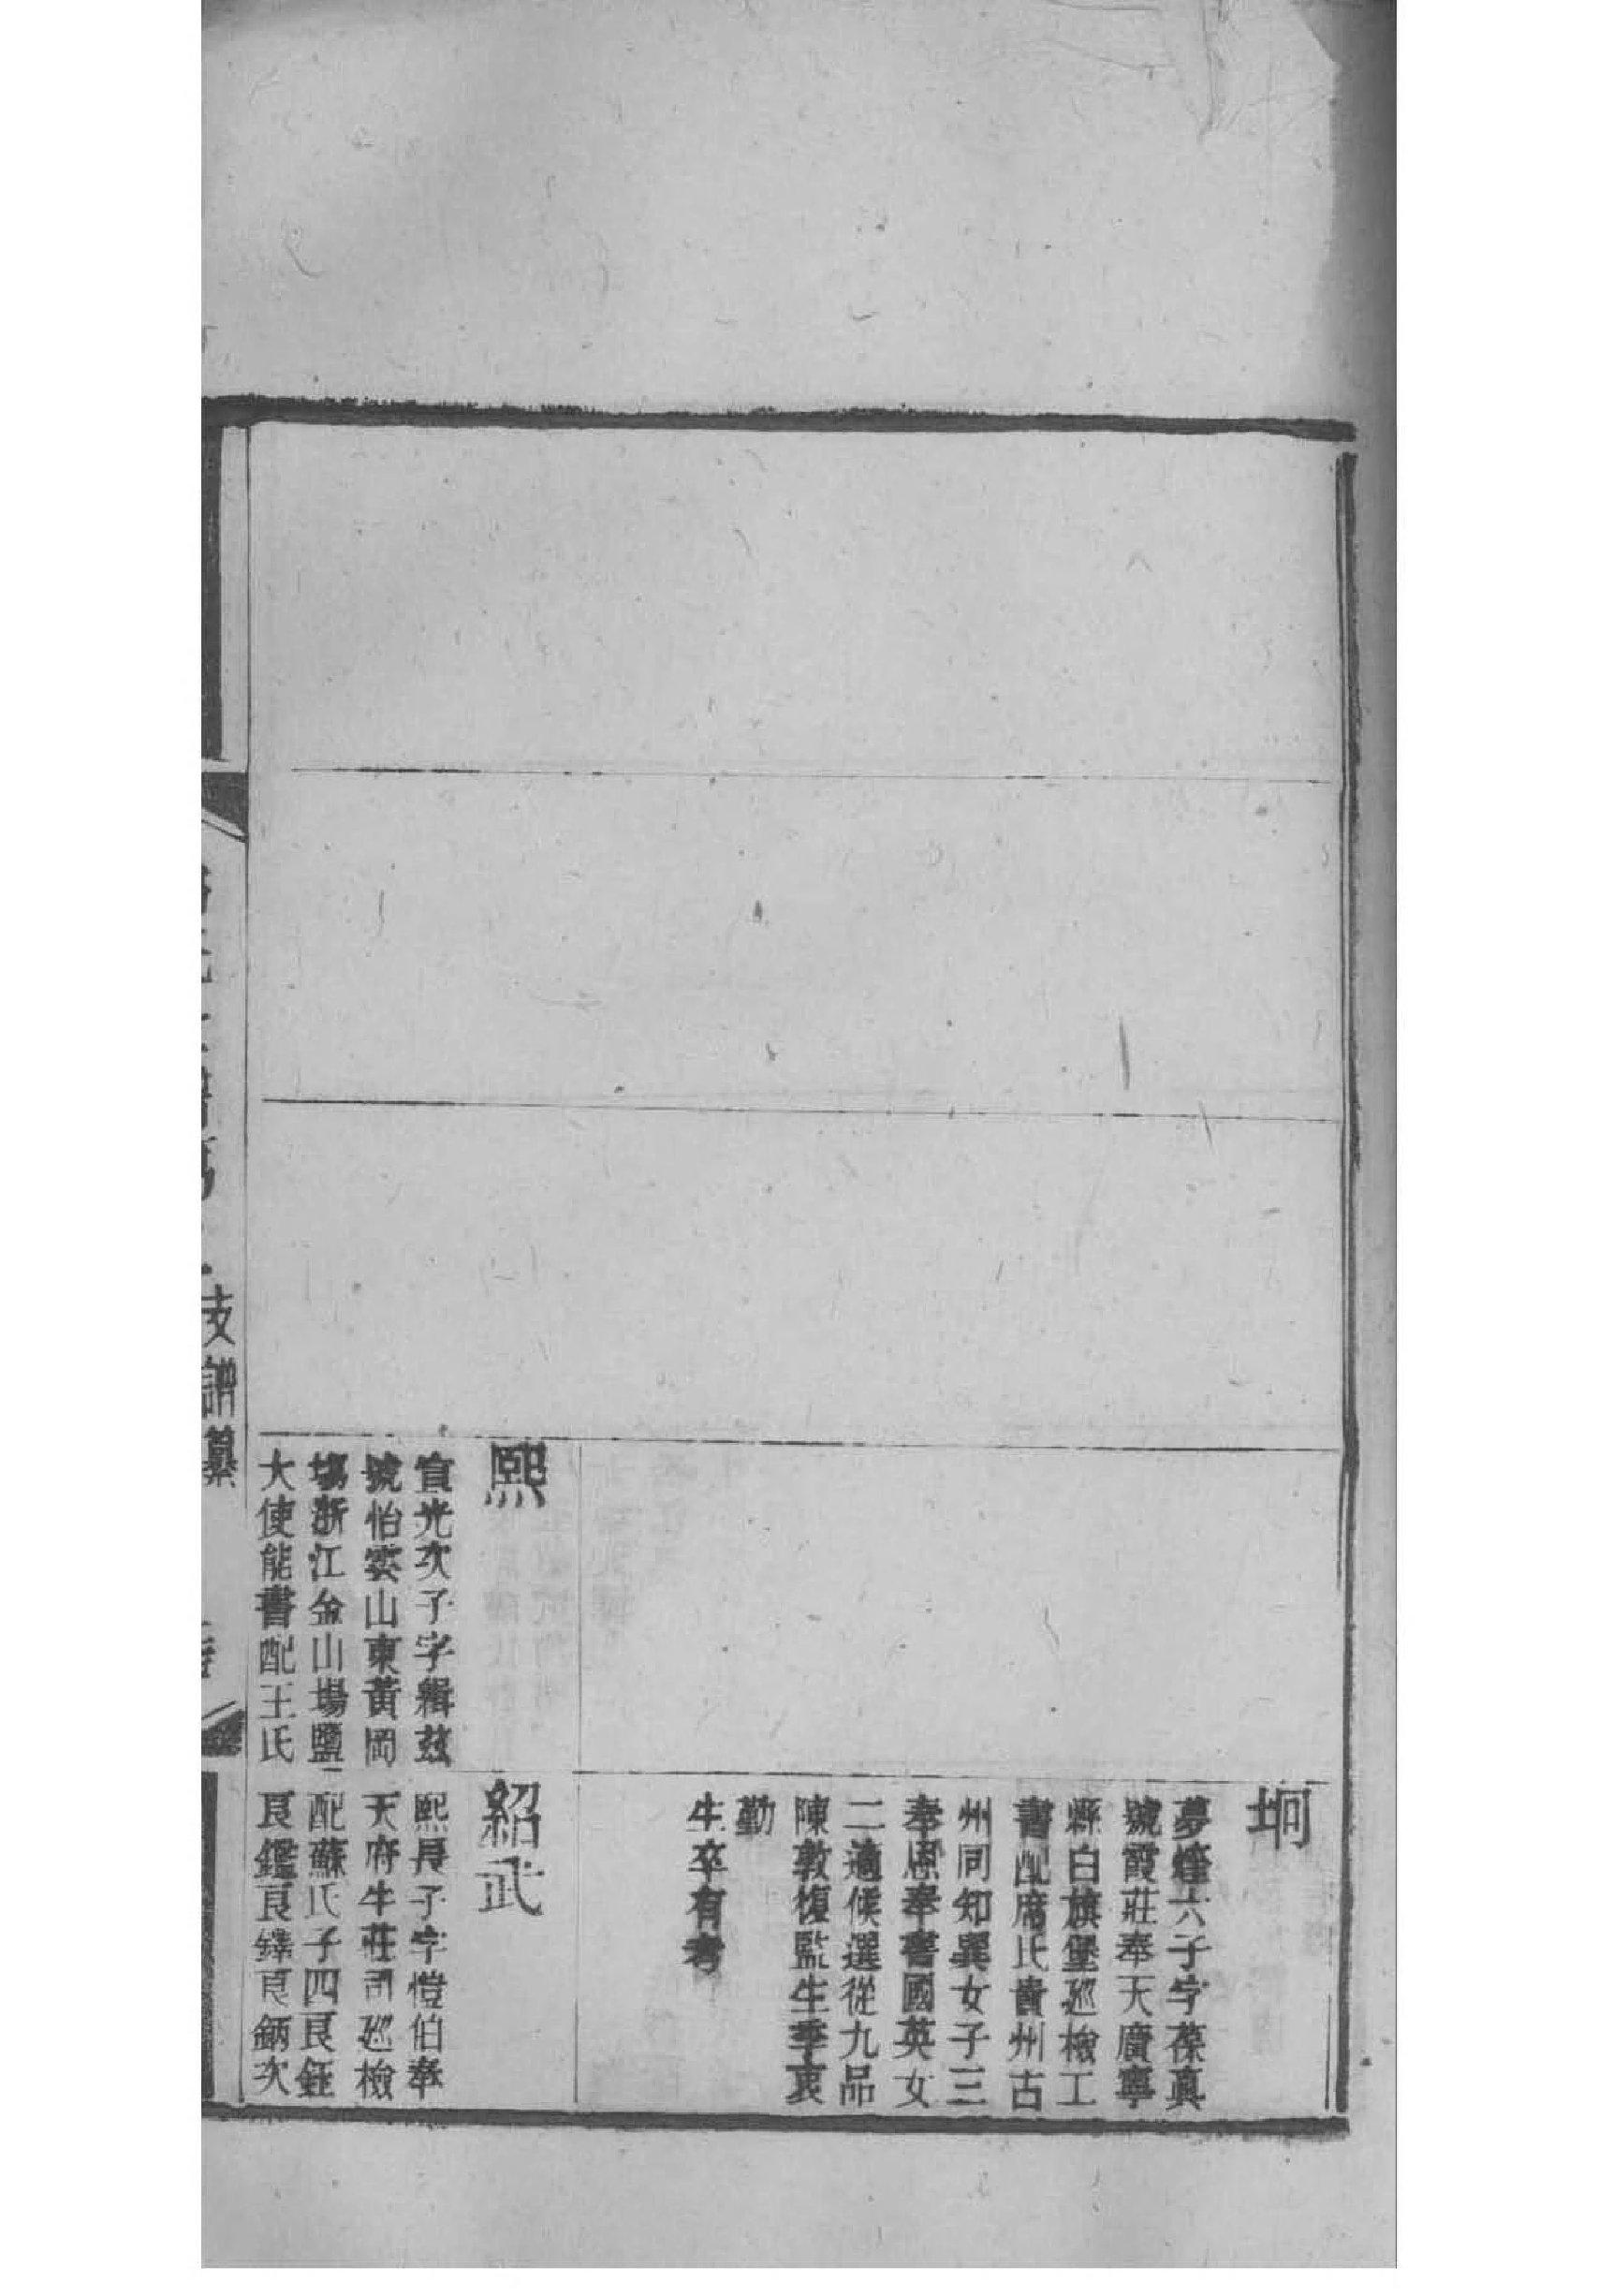 坰
夢熊六子字葆真
號霞莊奉天廣寧
縣白旗堡巡檢工
書配席氏貴州古
州同知巽女子三
奉恩奉書國英女
二適候選從九品
陳敦復監生季衷
勤
生卒有考
熙
宣光次子字緝茲
號怡雲山東黃岡
場浙江金山場鹽
大使能書配王氏
紹武
熙長子字愷伯奉
天府牛莊司巡檢
配蘇氏子四良鈺
良鑑良鐸良鈵次
支譜纂